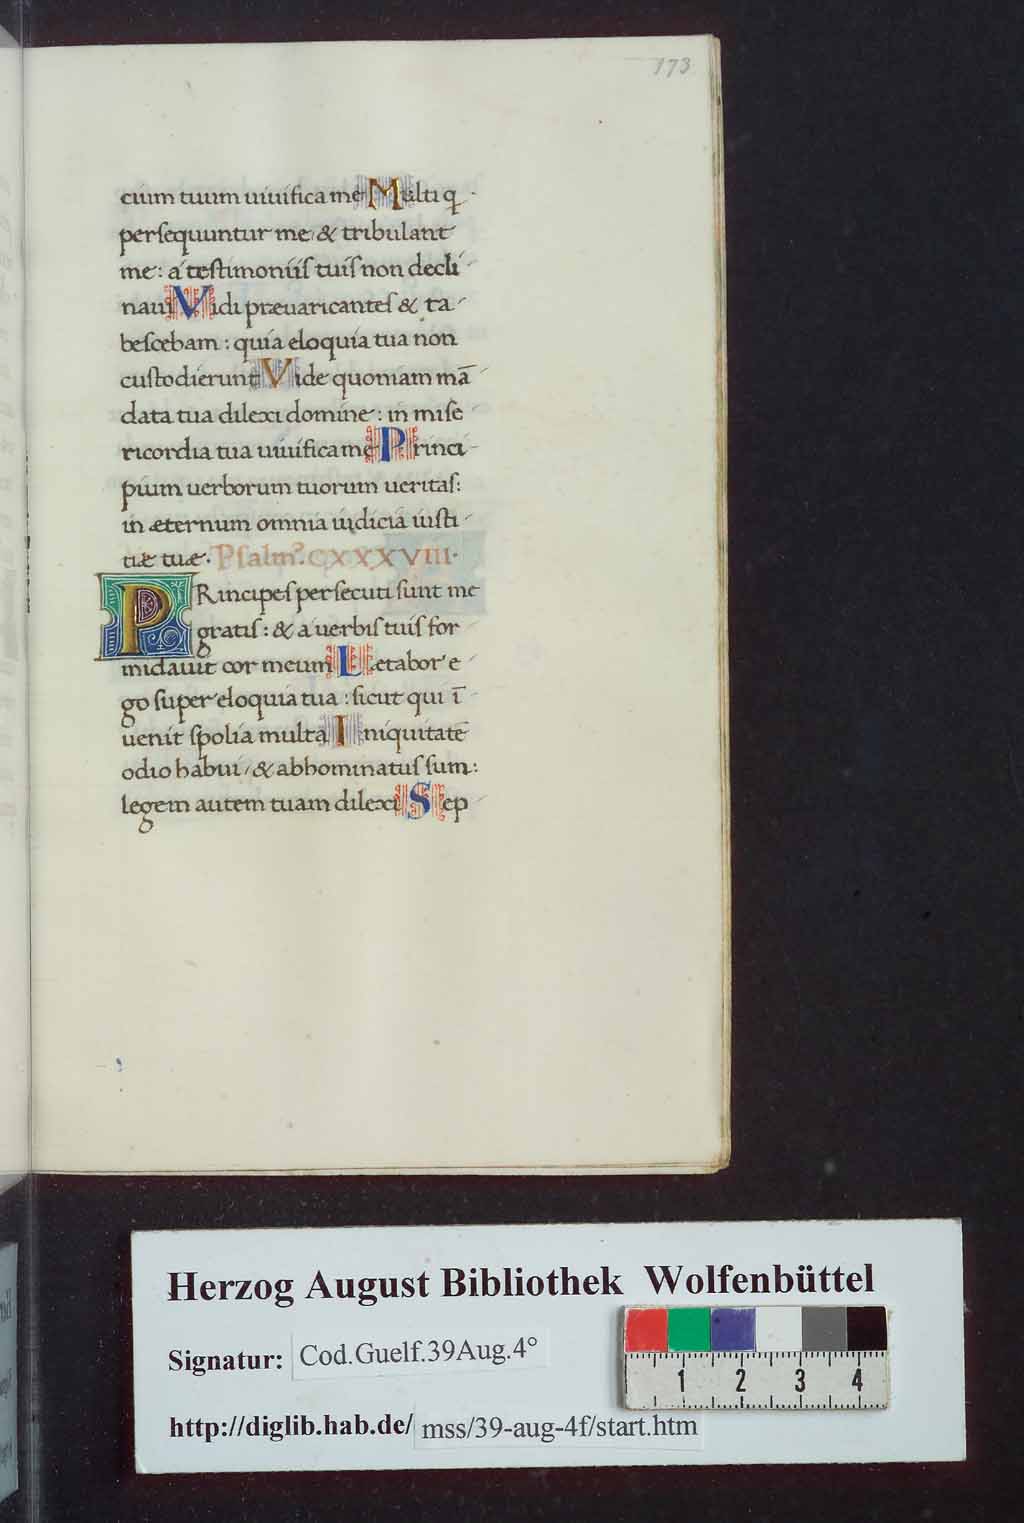 173
cium tuum uiuifica me Multi q
persequuntur me & tribulant
me: a testimoniis tuis non decli
naui Vidi præuaricantes & ta
bescebam: quia eloquia tua non
custodierunt Vide quoniam mā
data tua dilexi domine: in mise
ricordia tua uiuifica me Princi
pium uerborum tuorum ueritas:
in æternum omnia iudicia iusti
tiæ tuæ. Psalm⁹. CXXXVIII.
PRincipes persecuti sunt me
gratis: & a uerbis tuis for
midauit cor meum Lætabor e
go super eloquia tua: sicut qui ī
uenit spolia multa Iniquitatē
odio habui, & abhominatus sum:
legem autem tuam dilexi Sep
Herzog August Bibliothek Wolfenbüttel
Signatur: Cod.Guelf.39Aug.4°
1 2 3 4
http://diglib.hab.de/ mss/39-aug-4f/start.htm